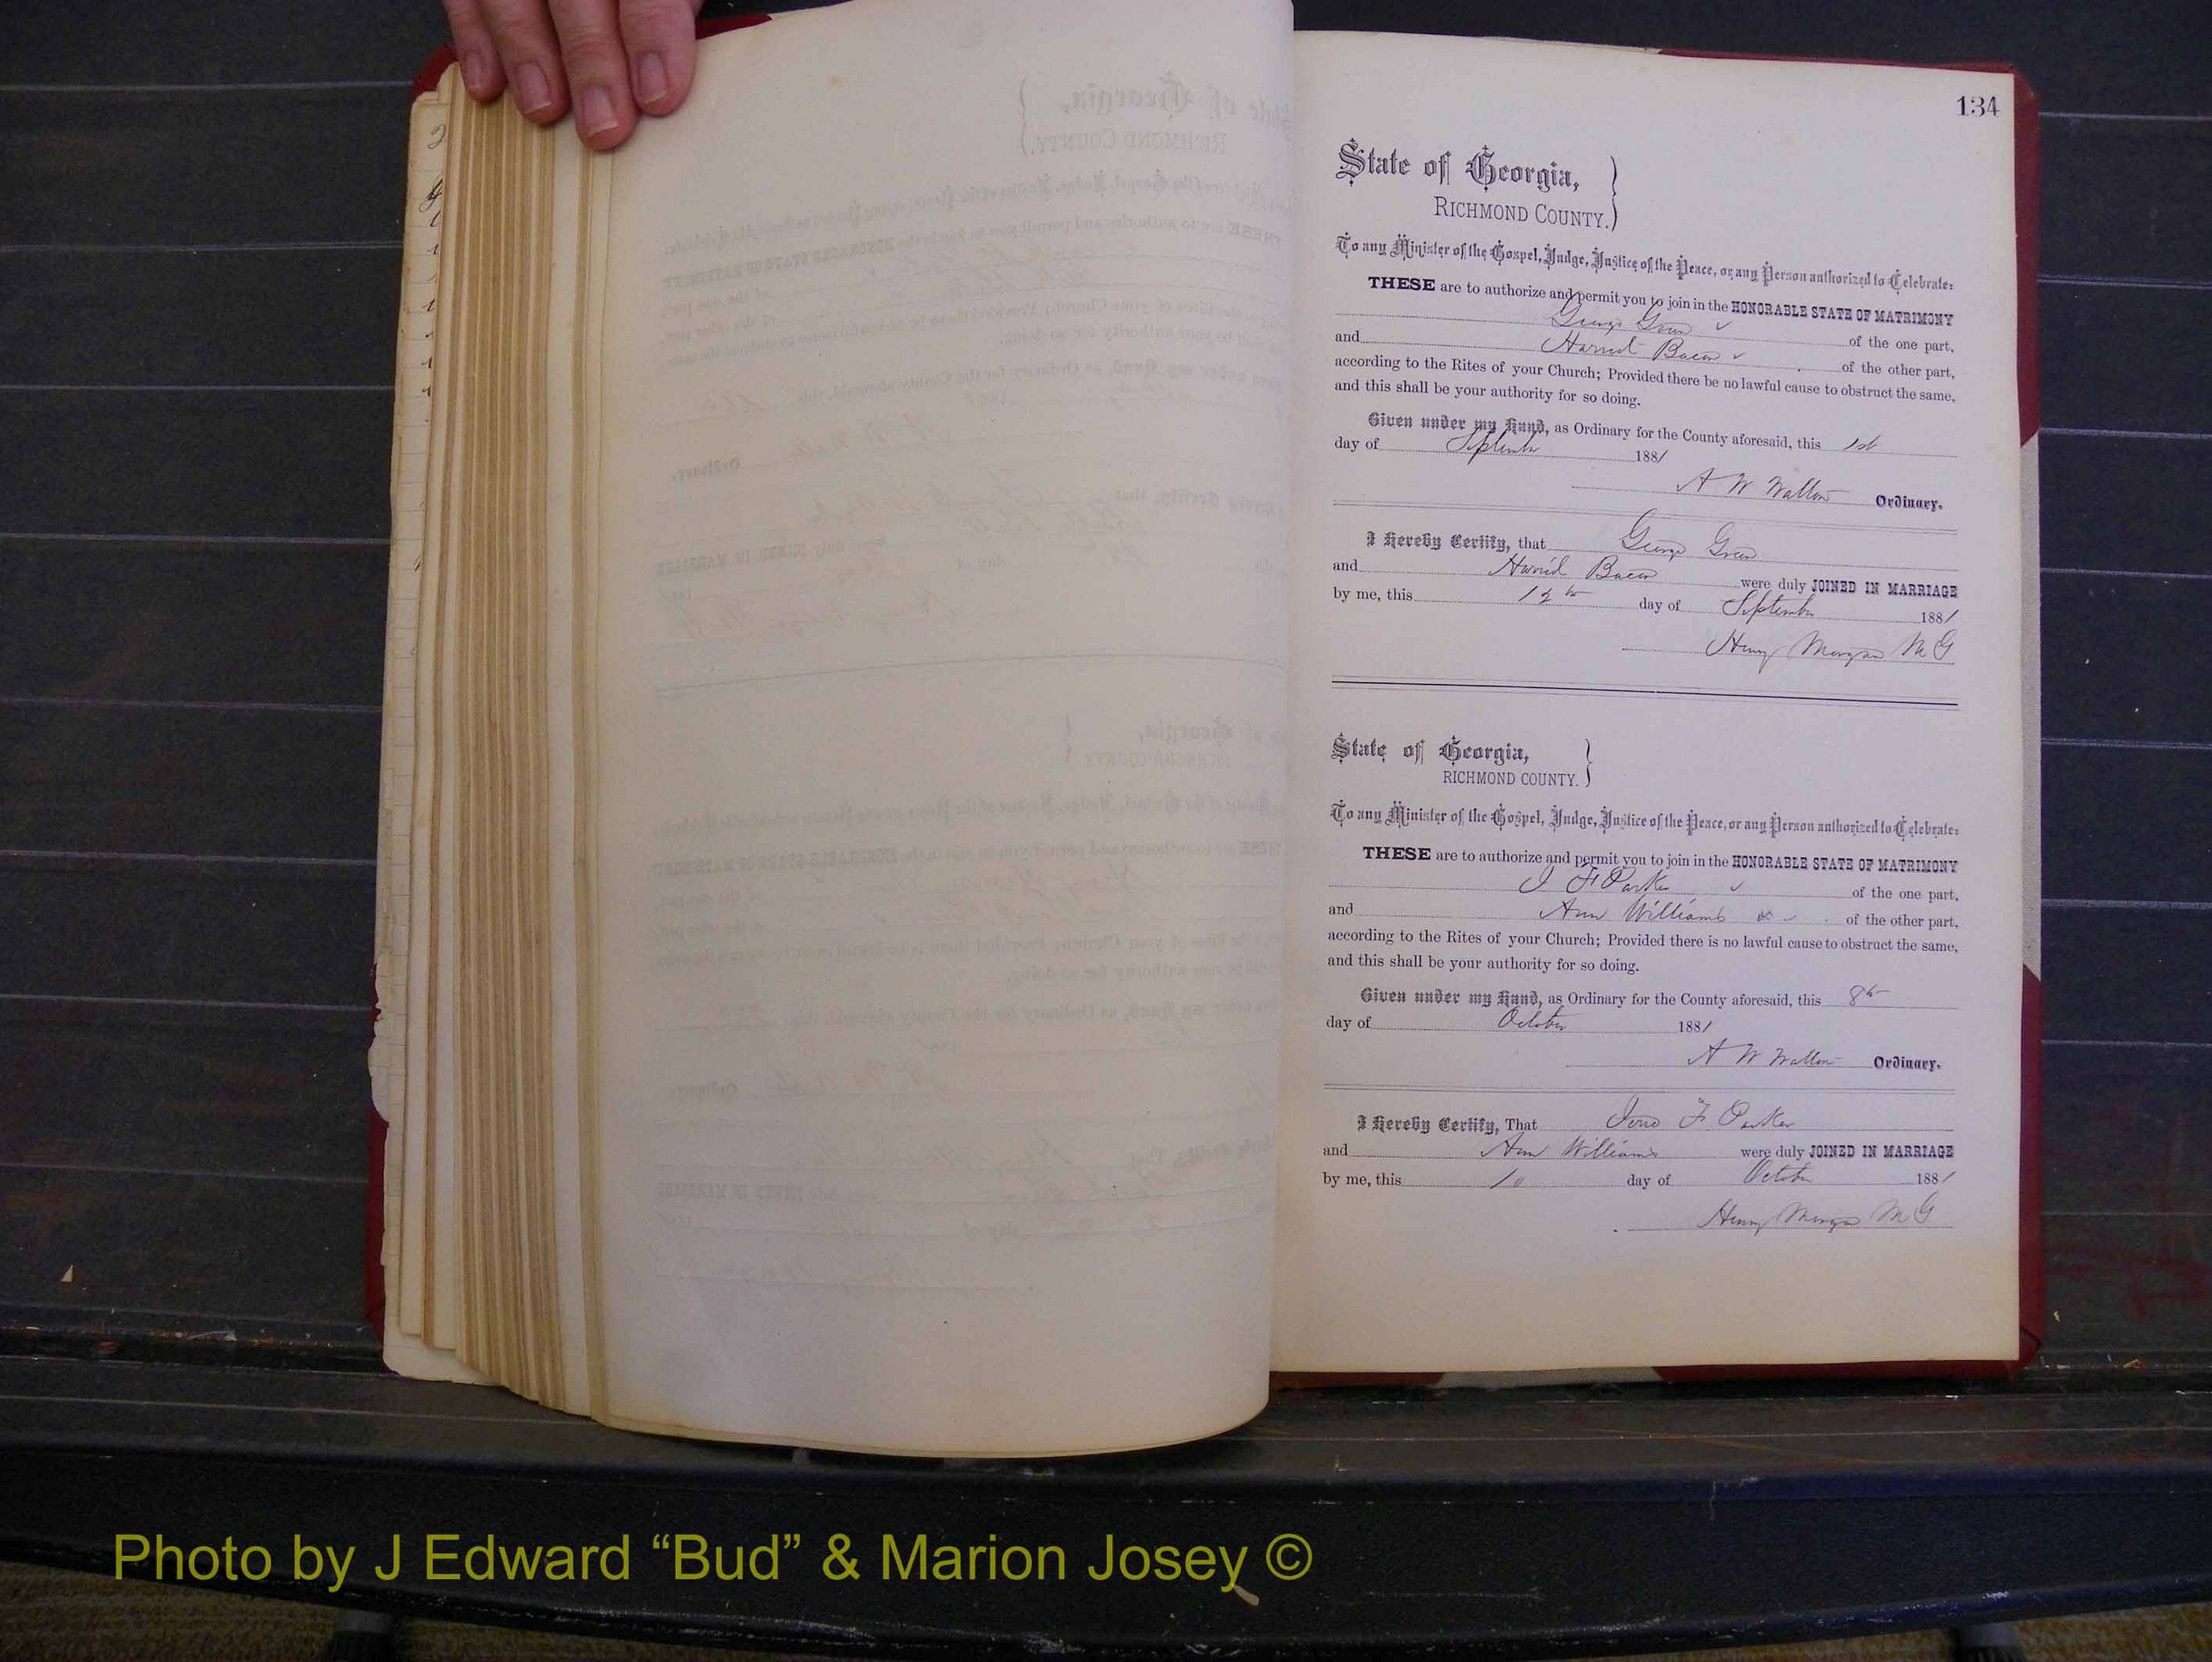 134
State of Georgia,
RICHMOND COUNTY.
To any Minister of the Gospel, Judge, Justice of the Peace, or any Person authorized to Celebrate:
THESE are to authorize and permit you to join in the HONORABLE STATE OF MATRIMONY
George Green of the one part,
and Harriet Bacon of the other part,
according to the Rites of your Church; Provided there be no lawful cause to obstruct the same,
and this shall be your authority for so doing.
Given under my Hand, as Ordinary for the County aforesaid, this 1st
day of September 1881
A W Walton Ordinary.
I Hereby Certify, that George Green
and Harriet Bacon were duly JOINED IN MARRIAGE
by me, this day of September 1881
Henry Morgan M G
State of Georgia,
RICHMOND COUNTY.
To any Minister of the Gospel, Judge, Justice of the Peace, or any Person authorized to Celebrate:
THESE are to authorize and permit you to join in the HONORABLE STATE OF MATRIMONY
F Parker of the one part,
and Ann Williams of the other part,
according to the Rites of your Church; Provided there is no lawful cause to obstruct the same,
and this shall be your authority for so doing.
Given under my Hand, as Ordinary for the County aforesaid, this 8th
day of October 1881
A W Walton Ordinary.
I Hereby Certify, That F Parker
and Ann Williams were duly JOINED IN MARRIAGE
by me, this 10 day of October 1881
Henry Morgan M G
Photo by J Edward “Bud” & Marion Josey ©